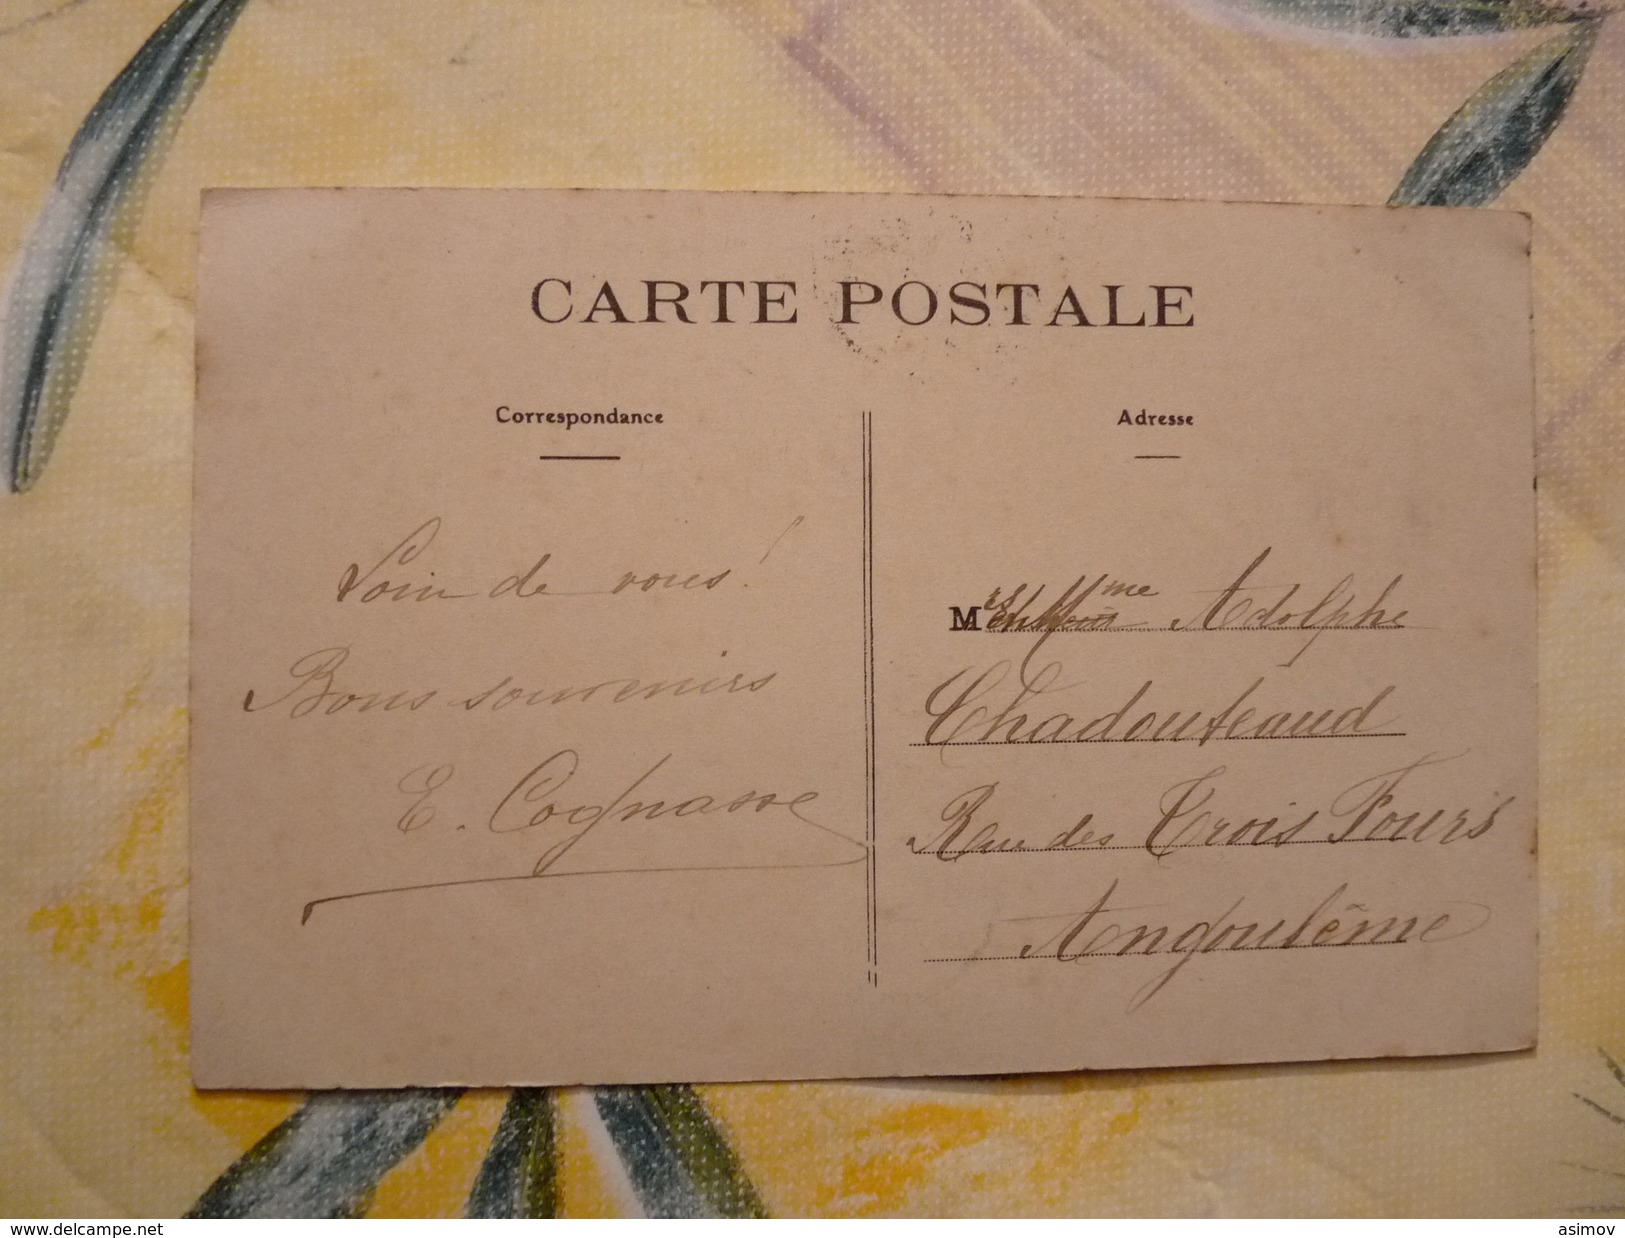 CARTE POSTALE
Correspondance
Loin de vous!
Bons souvenirs
E. Cognasse
Adresse
M Mme Adolphe
Chadouteaud
Rue des Trois Fours
Angoulême
www.delcampe.net
asimov